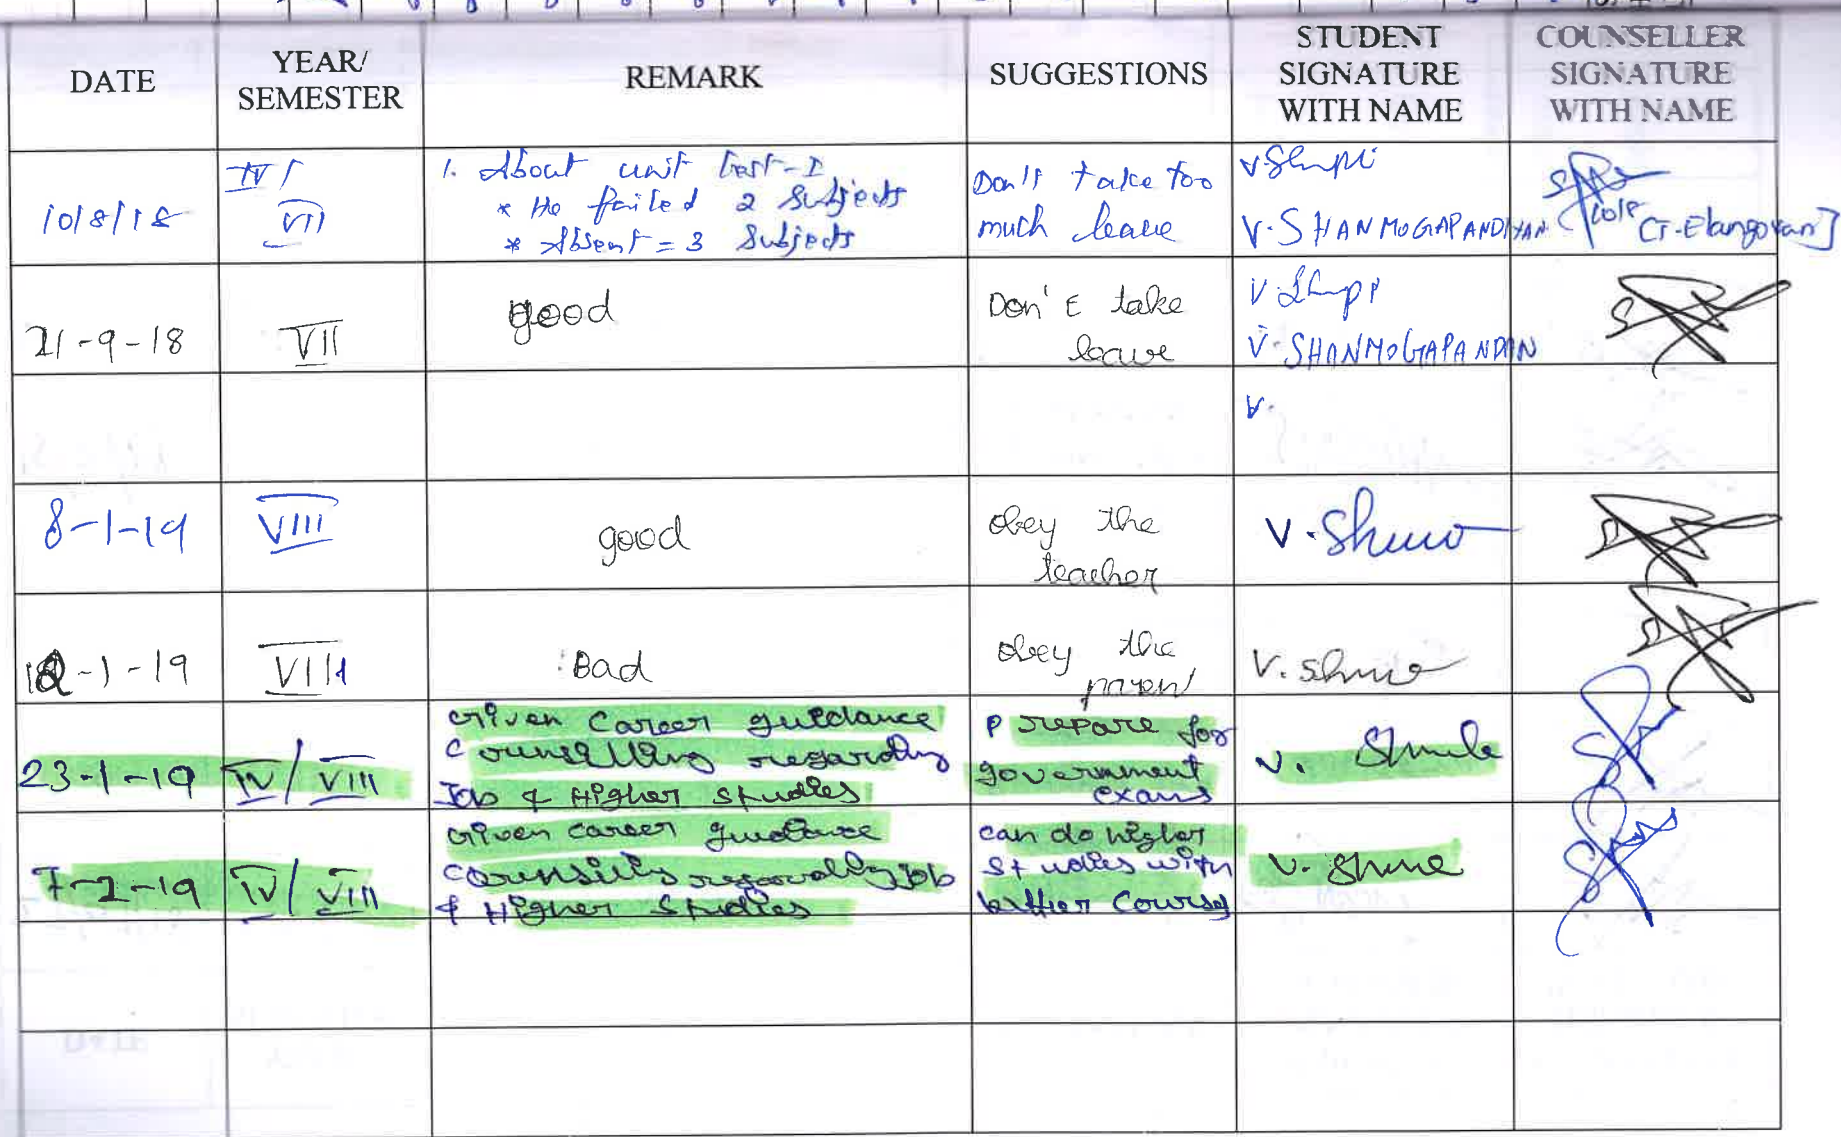 DATE
YEAR/
SEMESTER
REMARK
SUGGESTIONS
STUDENT
SIGNATURE
WITH NAME
COUNSELLER
SIGNATURE
WITH NAME
10/8/18
IV /
VII
1. About unit test-I
* He failed 2 Subjects
* Absent = 3 Subjects
Don't take too
much leave
V. SHANMOGAPANDIYAN
21-9-18
VII
good
Don't take
leave
V. SHANMOGAPANDIAN
V.
8-1-19
VIII
good
obey the
teacher
V.
-1-19
VIII
Bad
obey the
parent
V.
23-1-19
IV/ VIII
Given Career guidance
Counselling regarding
Job & Higher Studies
Prepare for
government
exams
V.
7-2-19
IV/ VIII
Given career guidance
job
& Higher Studies
can do higher
Studies with
V.